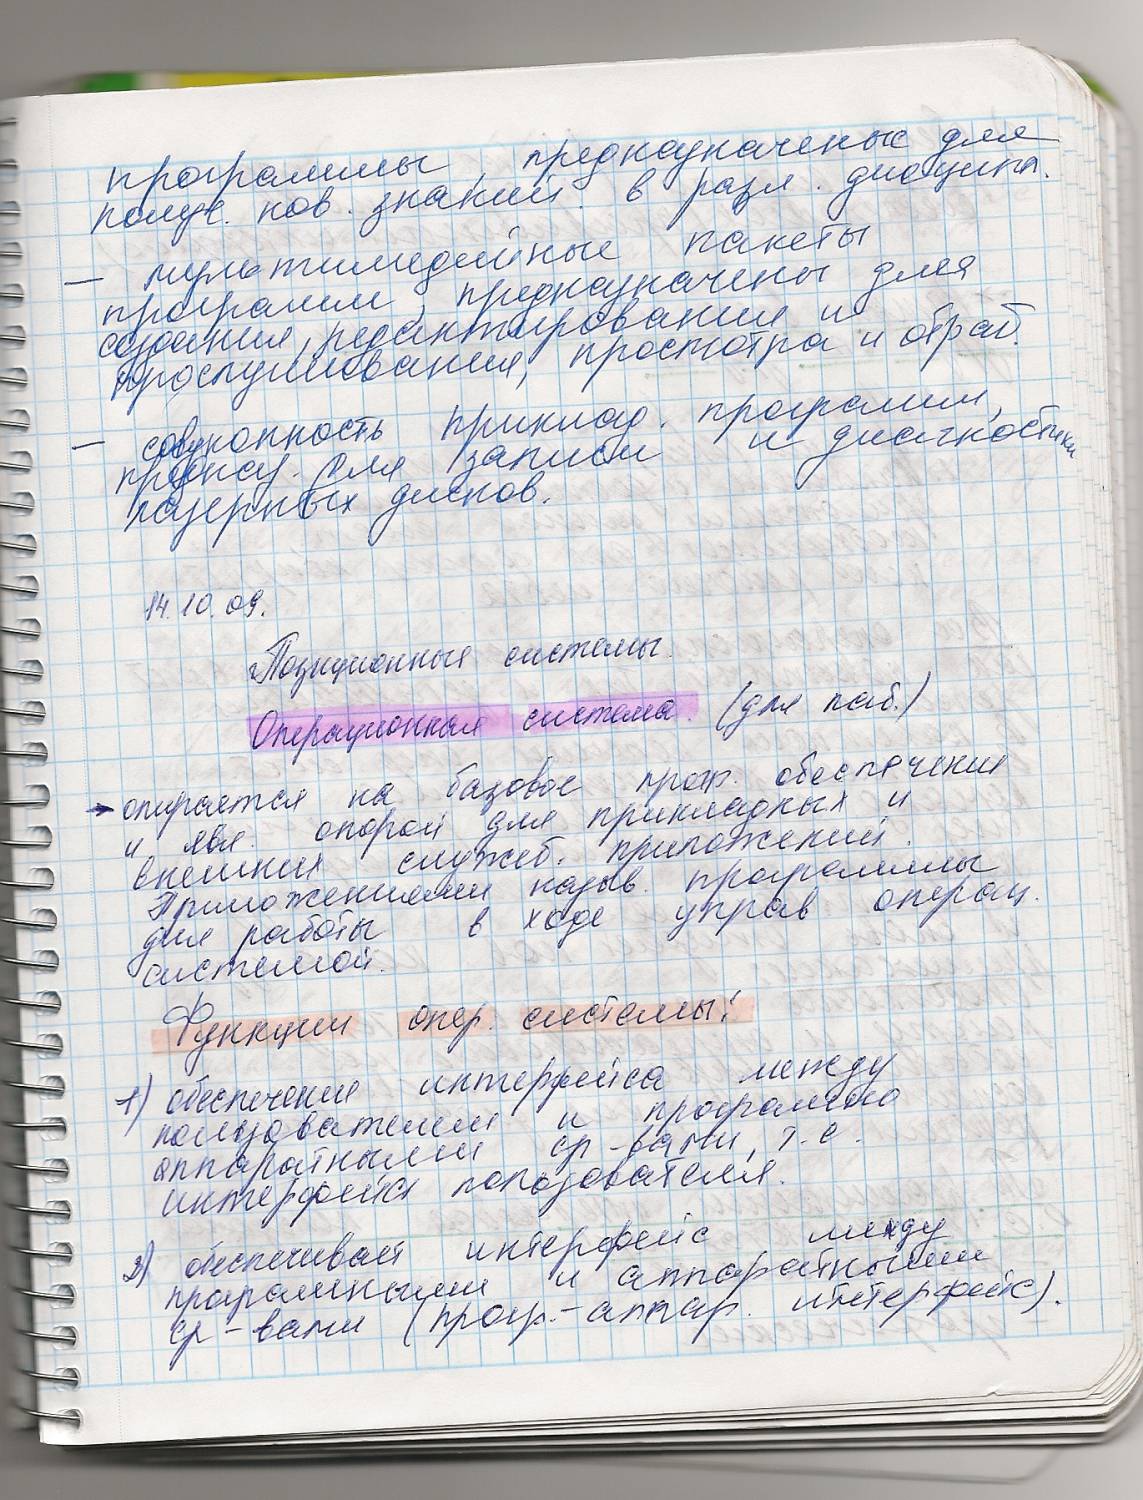 программы, предназначеные для
получ. нов. знаний. в разл. дисципл.
— мультимедийные пакеты
программ, предназначены для
создания, редактирования и
прослушивания, просмотра и обраб.
— совокупность приклад. программ,
предназ. для записи и диагностики
лазерных дисков.
14.10.09.
Позиционные системы.
Операционная система. (для лаб.)
→ опирается на базовое прог. обеспечение
и явл. опорой для прикладных и
внешних служеб. приложений.
Приложениями назыв. программы
для работы в ходе управ операц.
системой.
Функции опер. системы:
1) обеспечение интерфейса между
пользователем и програмно
аппаратными ср-вами, т.е.
интерфейс пользователя.
2) обеспечивает интерфейс между
програмными и аппаратными
ср-вами (прог.-аппар. интерфейс).